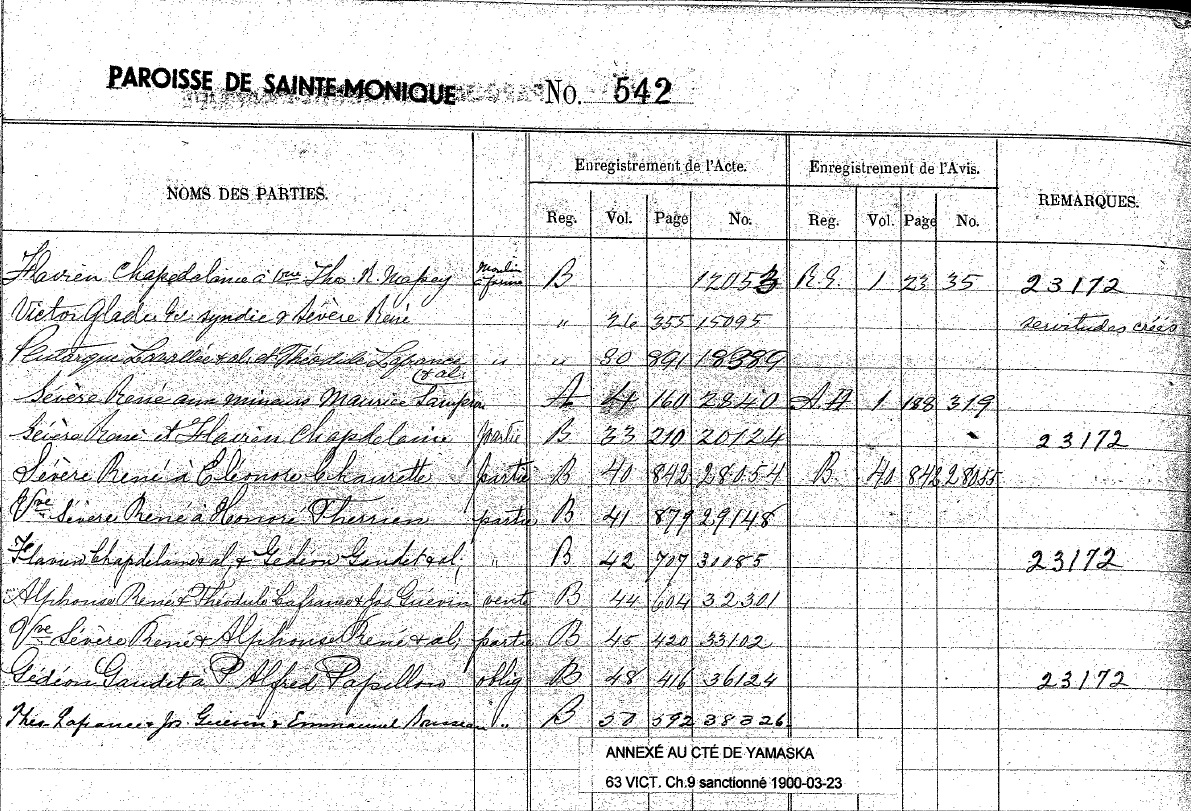 PAROISSE DE SAINTE-MONIQUE No. 542
NOMS DES PARTIES. Enregistrement de l'Acte. Enregistrement de l'Avis. REMARQUES.
Reg. Vol. Page No. Reg. Vol. Page No.
Flavien Chapdelaine à Vve Tho. R. Moulin à farine B 12053 R.G. 1 23 35 23172
Victor Gladu syndic & Sévère René " 26 355 15095 servitudes créés
Plutarque Lavallée & al. et Théodule Lafrance & al. " " 30 891 18389
Sévère René aux mineurs Maurice A 4 160 2840 A.A 1 188 319
Sévère René et Flavien Chapdelaine partie B 33 210 20124 23172
Sévère René à Eléonore Chaurette partie B 40 842 28054 B. 40 842 28055
Vve Sévère René à Honoré Therrien partie B 41 879 29148
Flavien Chapdelaine & al, & Gédéon Gaudet & al, " B 42 707 30085 23172
Alphonse René & Théodule Lafrance & Jos Guévin vente B 44 604 32301
Vve Sévère René & Alphonse René & al, partie B 45 420 33102
Gédéon Gaudet à P Alfred Papillon oblig B 48 416 36124 23172
Théo Lafrance & Jos. Guévin & Emmanuel Rousseau " B 50 592 38326
ANNEXÉ AU CTÉ DE YAMASKA
63 VICT. Ch.9 sanctionné 1900-03-23